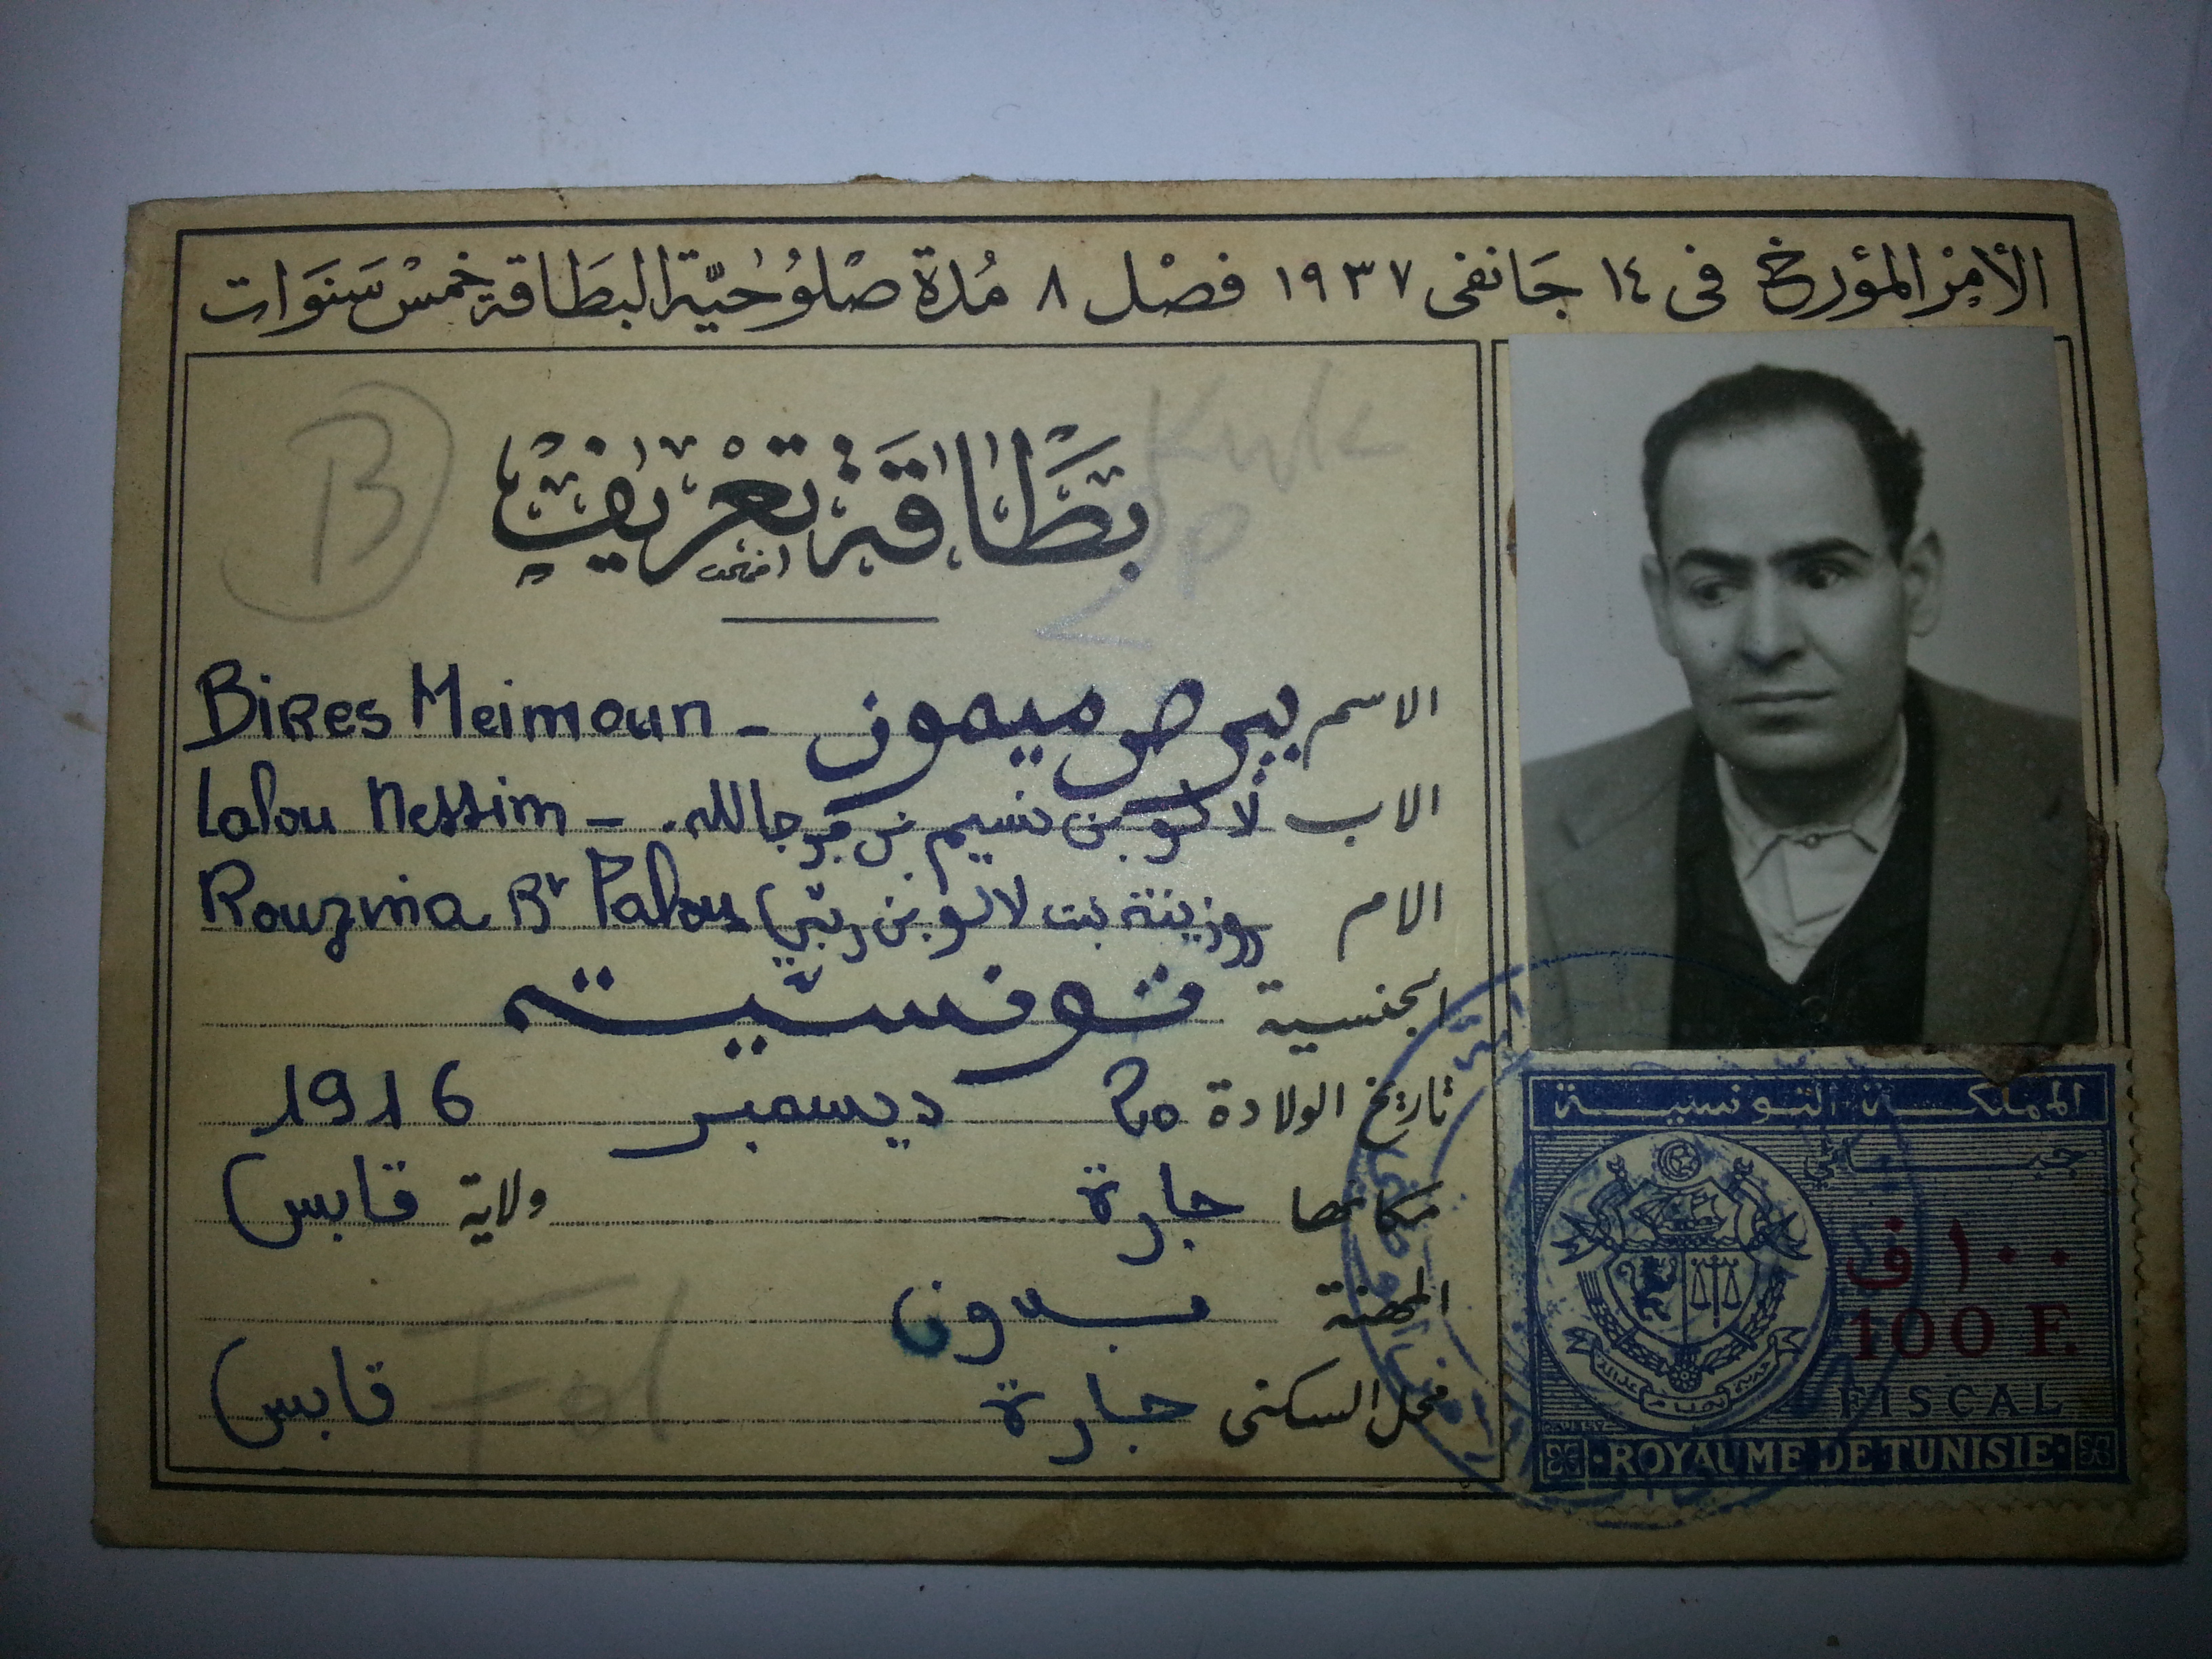 الأمر المؤرخ في ١٤ جانفي ١٩٣٧ فصل ٨ مدة صلوحية البطاقة خمس سنوات
B
بطاقة تعريف
الاسم بيرص ميمون - Bires Meimoun
الاب لالو بن نسيم بن فرجالله. - Lalou Nessim
الام روزينة بنت لالو بن ربّي Rouzina Bt Lalou
الجنسية تونسيّة
تاريخ الولادة 20 ديسمبر 1916
مكانها جارة ولاية قابس
المهنة بدون
محل السكنى جارة قابس
المملكة التونسية
جبائي
١٠٠ ف
100 F.
FISCAL
ROYAUME DE TUNISIE